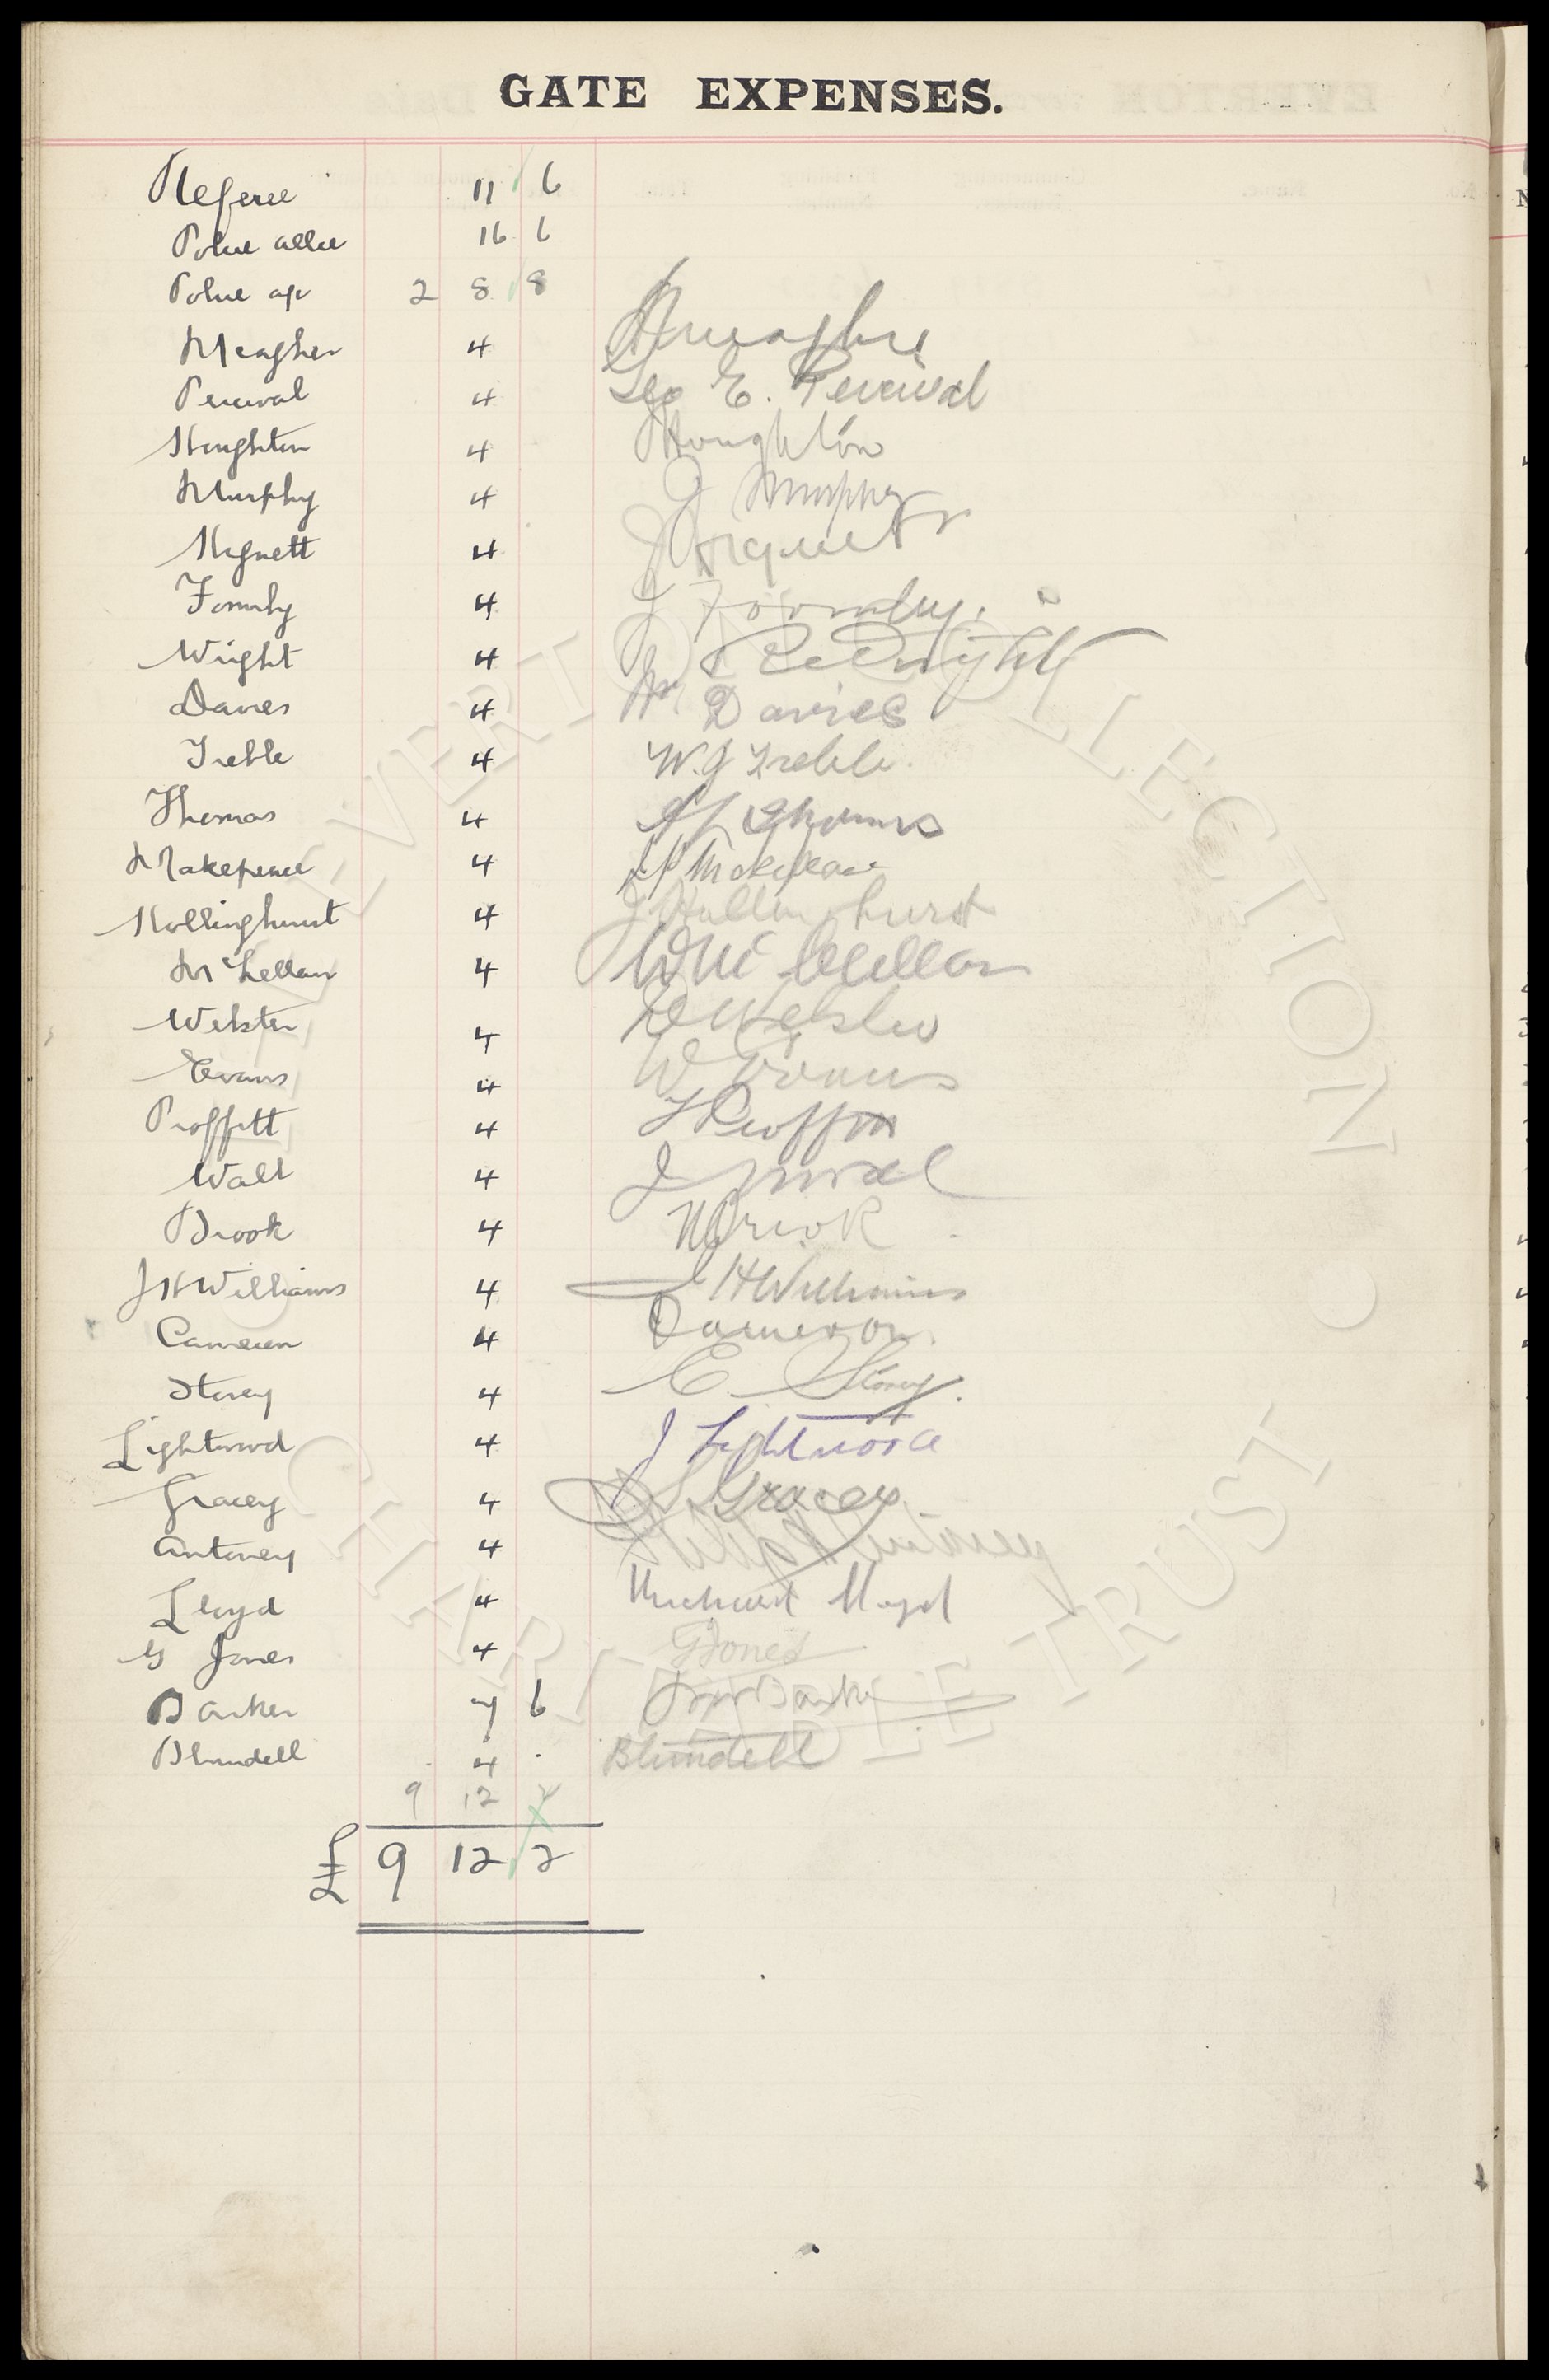 GATE EXPENSES.
Referee 11 6
Police 16 6
Police 2 8 8
Meagher 4
Percival 4 Geo E. Percival
Houghton 4 Houghton
Murphy 4 J Murphy
Hignett 4 J Hignett
Formby 4 J Formby.
Wright 4 Wright
Davies 4 W. Davies
Treble 4 W.J Treble.
Thomas 4 Thomas
Makepeace 4 Makepeace
Hollinghurst 4 J Hollinghurst
McLellan 4 W McClellan
Webster 4 Webster
Evans 4 W Evans
Proffitt 4 Proffitt
Wall 4 J
Brook 4 Brook
J H Williams 4 J H Williams
Cameron 4 Cameron.
Storey 4 E Storey.
Lightwood 4 J Lightwood
Gracey 4 Gracey
Antoney 4 Antoney
Lloyd 4 Lloyd
G Jones 4 G Jones
Barker 7 6 Barker
Blundell 4 Blundell
9 12 2
£ 9 12 2
EVERTON COLLECTION
CHARITABLE TRUST